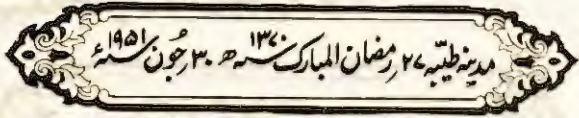 مدینہ طیّبہ ۲۷ رمضان المبارک ۱۳۷۰؁ھ ۳۰ جُون ۱۹۵۱؁ء